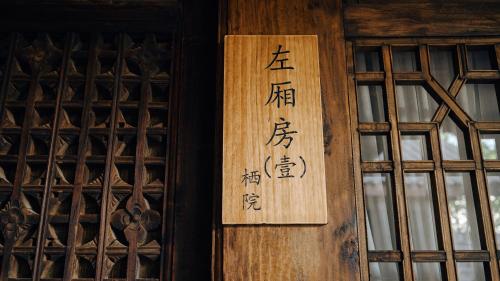 左厢房(壹)
栖院